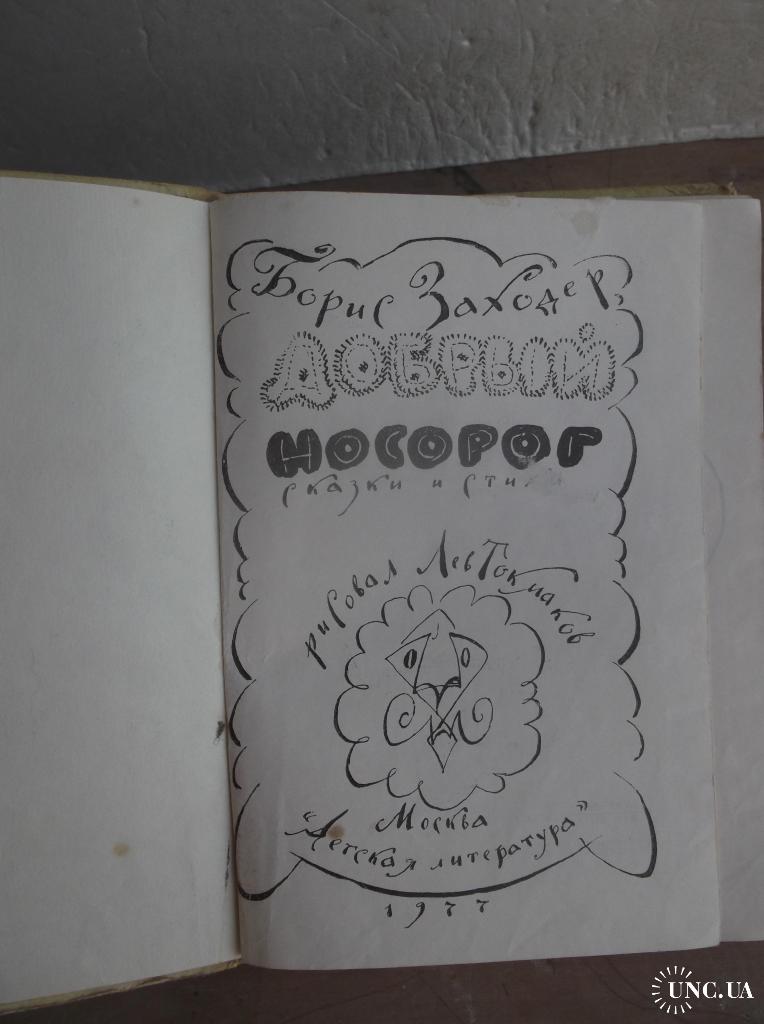 Борис Заходер
ДОБРЫЙ
НОСОРОГ
сказки и
рисовал Лев Токмаков
Москва
"Детская литература"
1977
UNC.UA